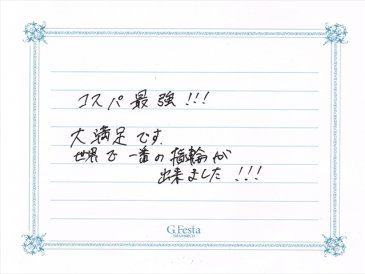 コスパ最強!!!
大満足です.
世界で一番の指輪が
出来ました!!!
G.Festa